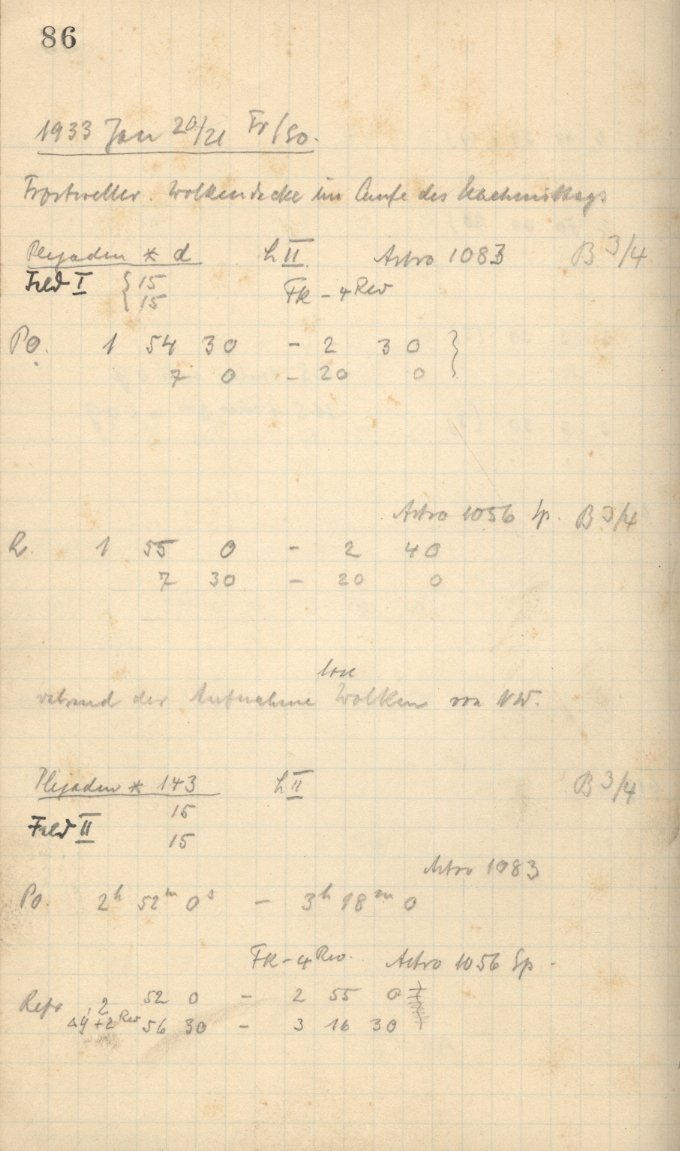 86
1933 Jan 20/21 Fr/So.
Frostwetter. Wolkendecke im Laufe des Nachmittags
Plejaden * d h II Astro 1083 B 3/4
Feld I { 15
15 FR - 4 Rev
Po. 1 54 30 - 2 3 0 }
7 0 - 20 0
Astro 1056 B 3/4
R. 1 55 0 - 2 4 0
7 30 - 20 0
lose
während der Aufnahme Wolken von NW.
Plejaden * 143 h II B 3/4
15
Feld II 15
Astro 1083
Po. 2h 52m 0s - 3h 18m 0
FR - 4 Rev. Astro 1056 Sp.
Refr 2 52 0 - 2 55 0
Δy + 2 Rev 56 30 - 3 16 30